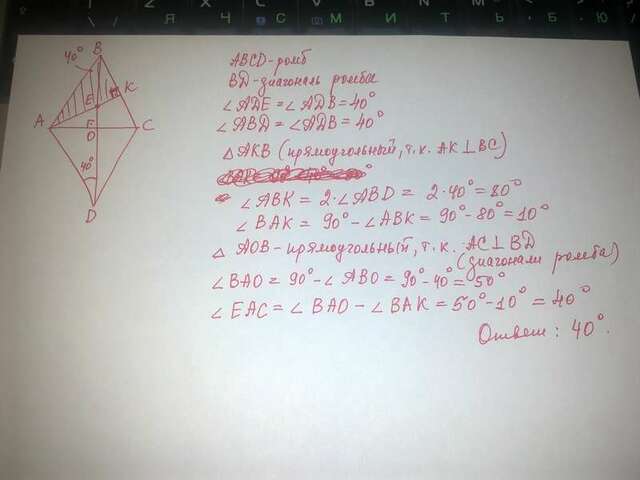 Я Ч С М И Т Ь Б Ю
40°
B
K
E
A
F
O
C
40°
D
ABCD-ромб
BD-диагональ ромба
∠ADE=∠ADB=40°
∠ABD=∠ADB=40°
△ AKB (прямоугольный, т.к. AK⊥BC)
∠ABK = 2·∠ABD = 2·40°=80°
∠BAK = 90°-∠ABK = 90°-80°=10°
△ AOB-прямоугольный, т.к. AC⊥BD
(диагонали ромба)
∠BAO = 90°-∠ABO = 90°-40°=50°
∠EAC=∠BAO-∠BAK=50°-10°=40°
Ответ: 40°.